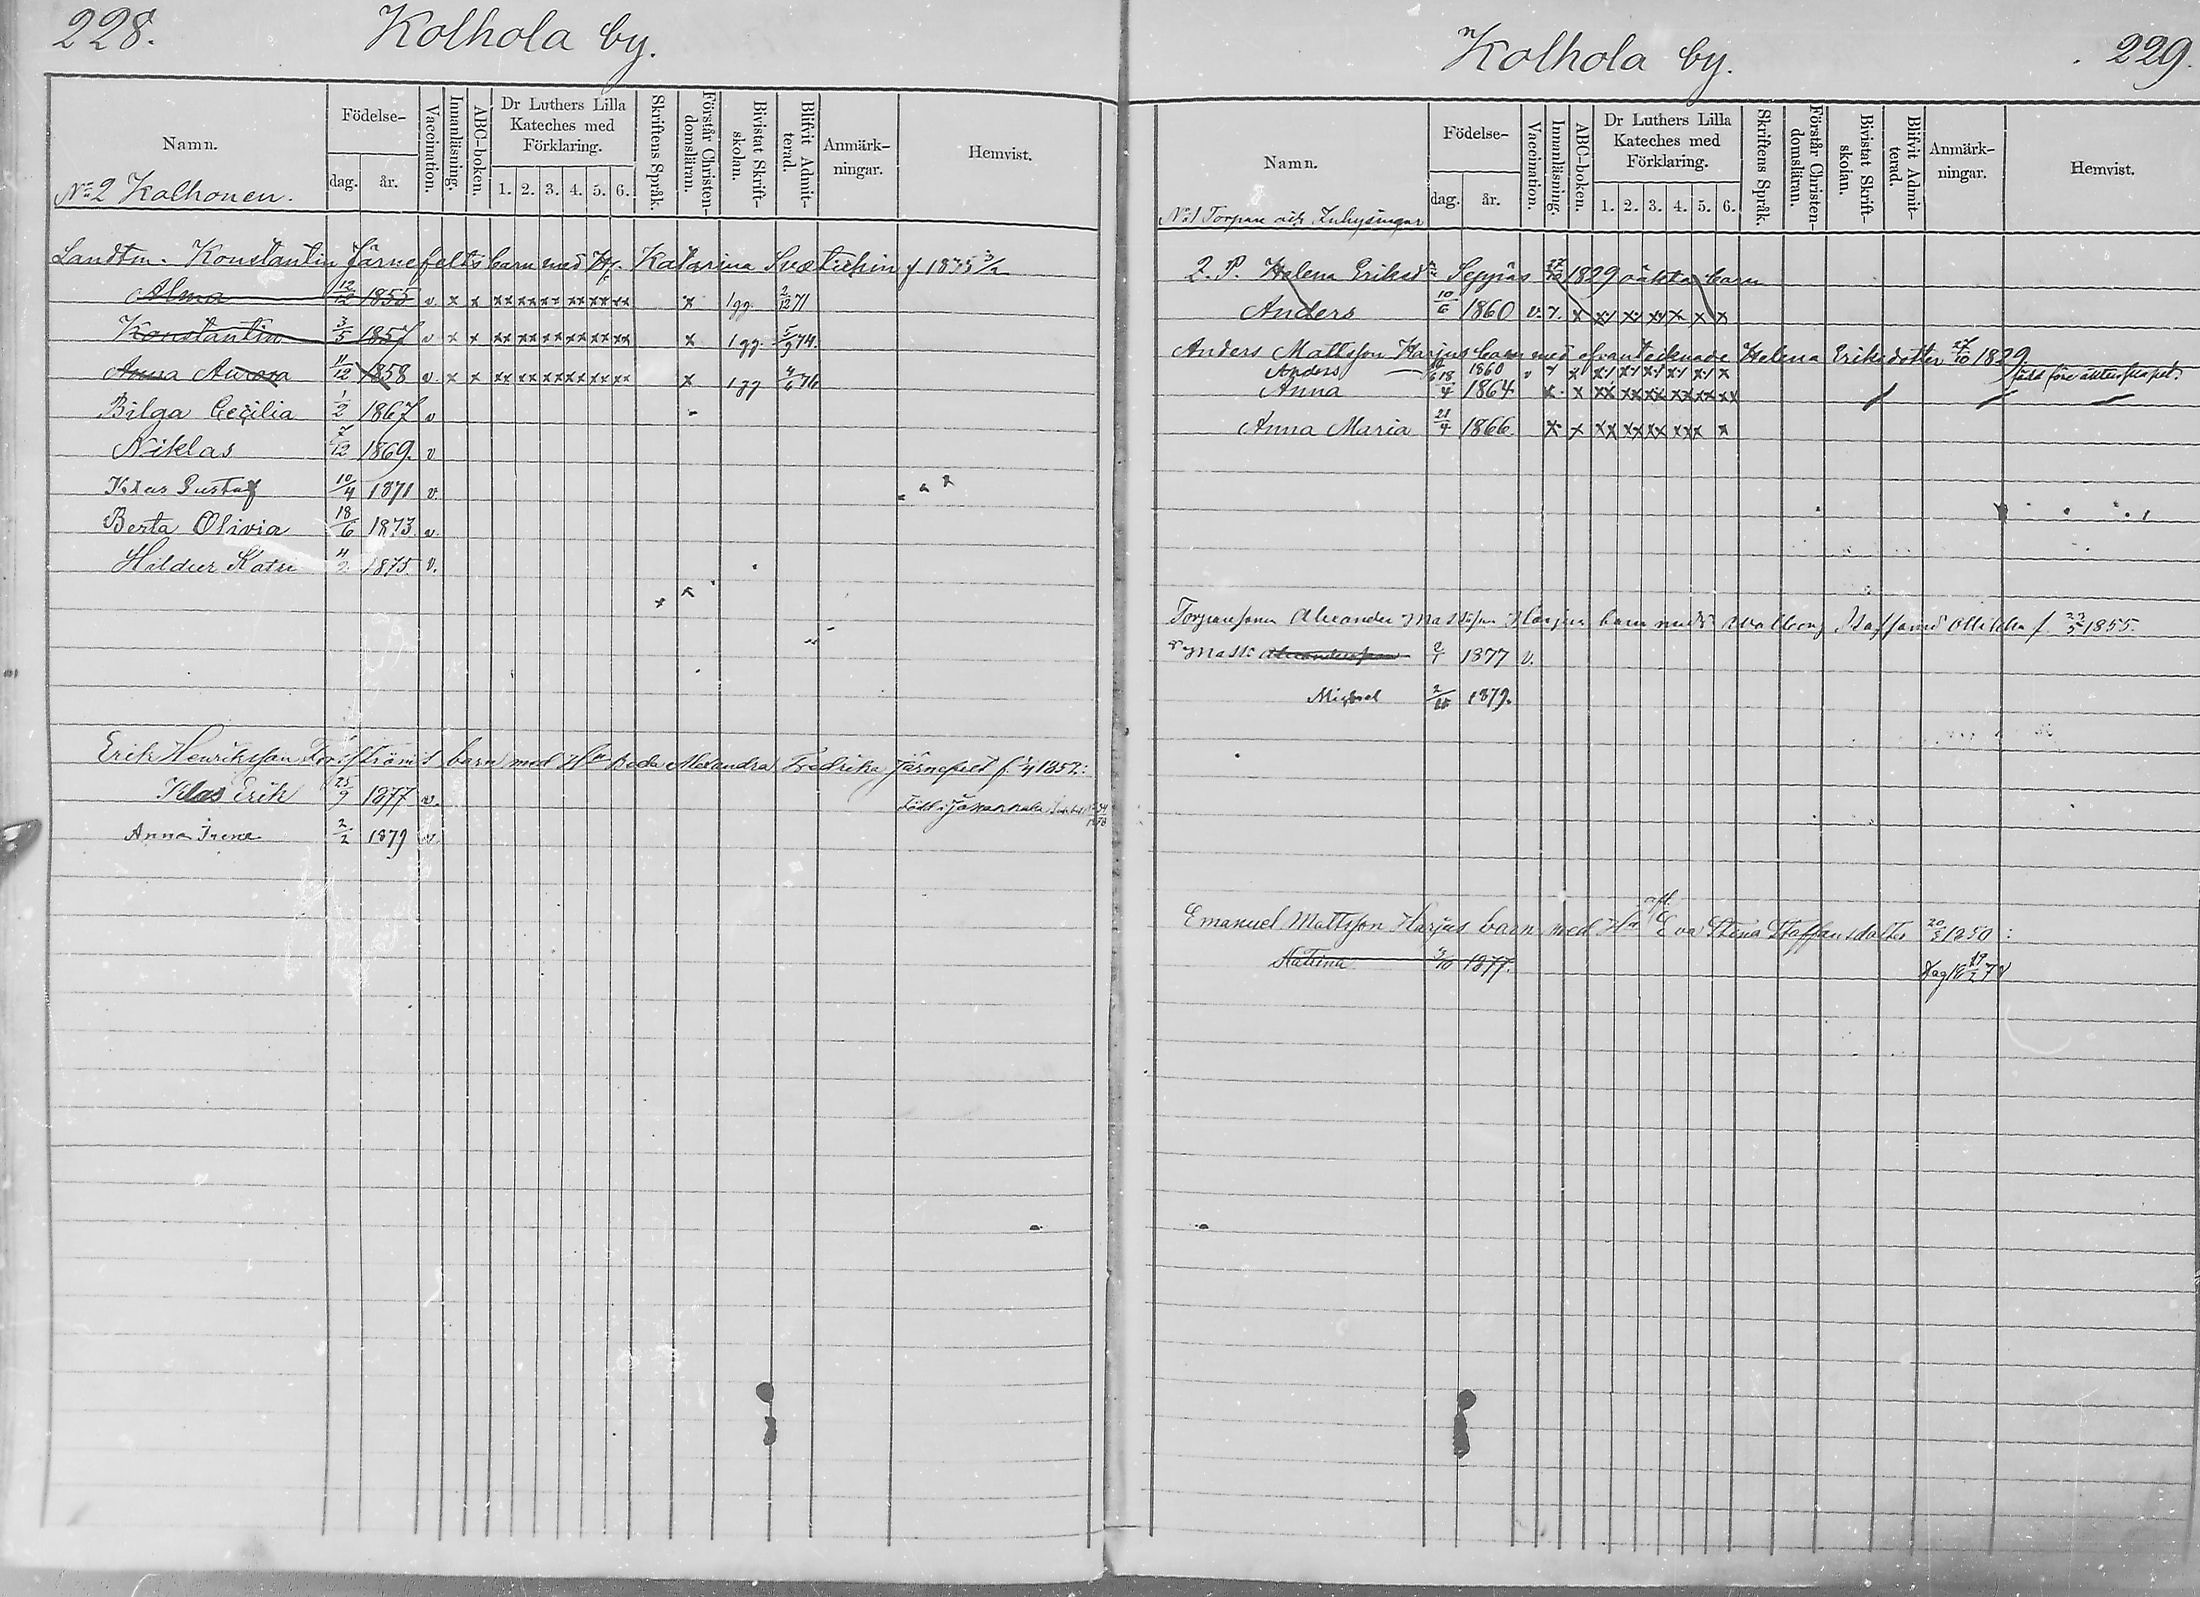 228.
Kolhola by.
Namn.
Födelse-
dag.
år.
Vaccination.
Innanläsning.
ABC-boken.
Dr Luthers Lilla Kateches med Förklaring.
1. 2. 3. 4. 5. 6.
Skriftens Språk.
Förstår Christendomsläran.
Bivistat Skriftskolan.
Blifvit Admitterad.
Anmärkningar.
Hemvist.
No 2 Kolhonen.
Landtm. Konstantin Järnefelts barn med H. Katarina Svætichin f 1835 3/2
Alma 12/12 1855 v x x xx xx xx xx xx xx x 1 gg. 2/12 71
Konstantin 3/5 1857 v x x xx xx xx xx xx xx x 1 gg. 5/9 74.
Anna Aurora 11/12 1858 v x x xx xx xx xx xx xx x 1 gg 4/6 76
Bilga Cecilia 1/2 1867 v
Niklas 7/12 1869. v
Klas Gustaf 10/4 1871 v.
Berta Olivia 18/6 1873 v.
Hildur Katri 1875. v.
Erik Henriksson barn med Hu Beda Alexandra Fredrika Järnefelt f 1852:
Klas Erik 25/9 1877 v. Född i Janakkala
Anna Irene 2/2 1879 v.
Kolhola by.
229.
Namn.
Födelse-
dag.
år.
Vaccination.
Innanläsning.
ABC-boken.
Dr Luthers Lilla Kateches med Förklaring.
1. 2. 3. 4. 5. 6.
Skriftens Språk.
Förstår Christendomsläran.
Bivistat Skriftskolan.
Blifvit Admitterad.
Anmärkningar.
Hemvist.
No 1 Torpare och Inhysingar
Q. P. Helena Eriksdr Seppäs 27/10 1829 oäkta barn
Anders 10/6 1860 v. x x x x x x x x
Anders Mattsson Harjus barn med ofvantecknade Helena Eriksdotter 27/10 1829
Anders 10/6 1860 v född före äktenskapet.
Anna 18/4 1864 x x xx xx xx xx xx xx
Anna Maria 21/4 1866 x x xx xx xx xx x x
Torparesonen Alexander Mattsson Harjus barn med Walborg Staffansd f. 23/5 1855.
Matts Alexandersson 2/1 1877 v.
Michael 1879.
Emanuel Mattsson Harjus barn med Hu afl. Eva Stina Staffansdotter 20/3 1850:
Katrina 3/10 1877.